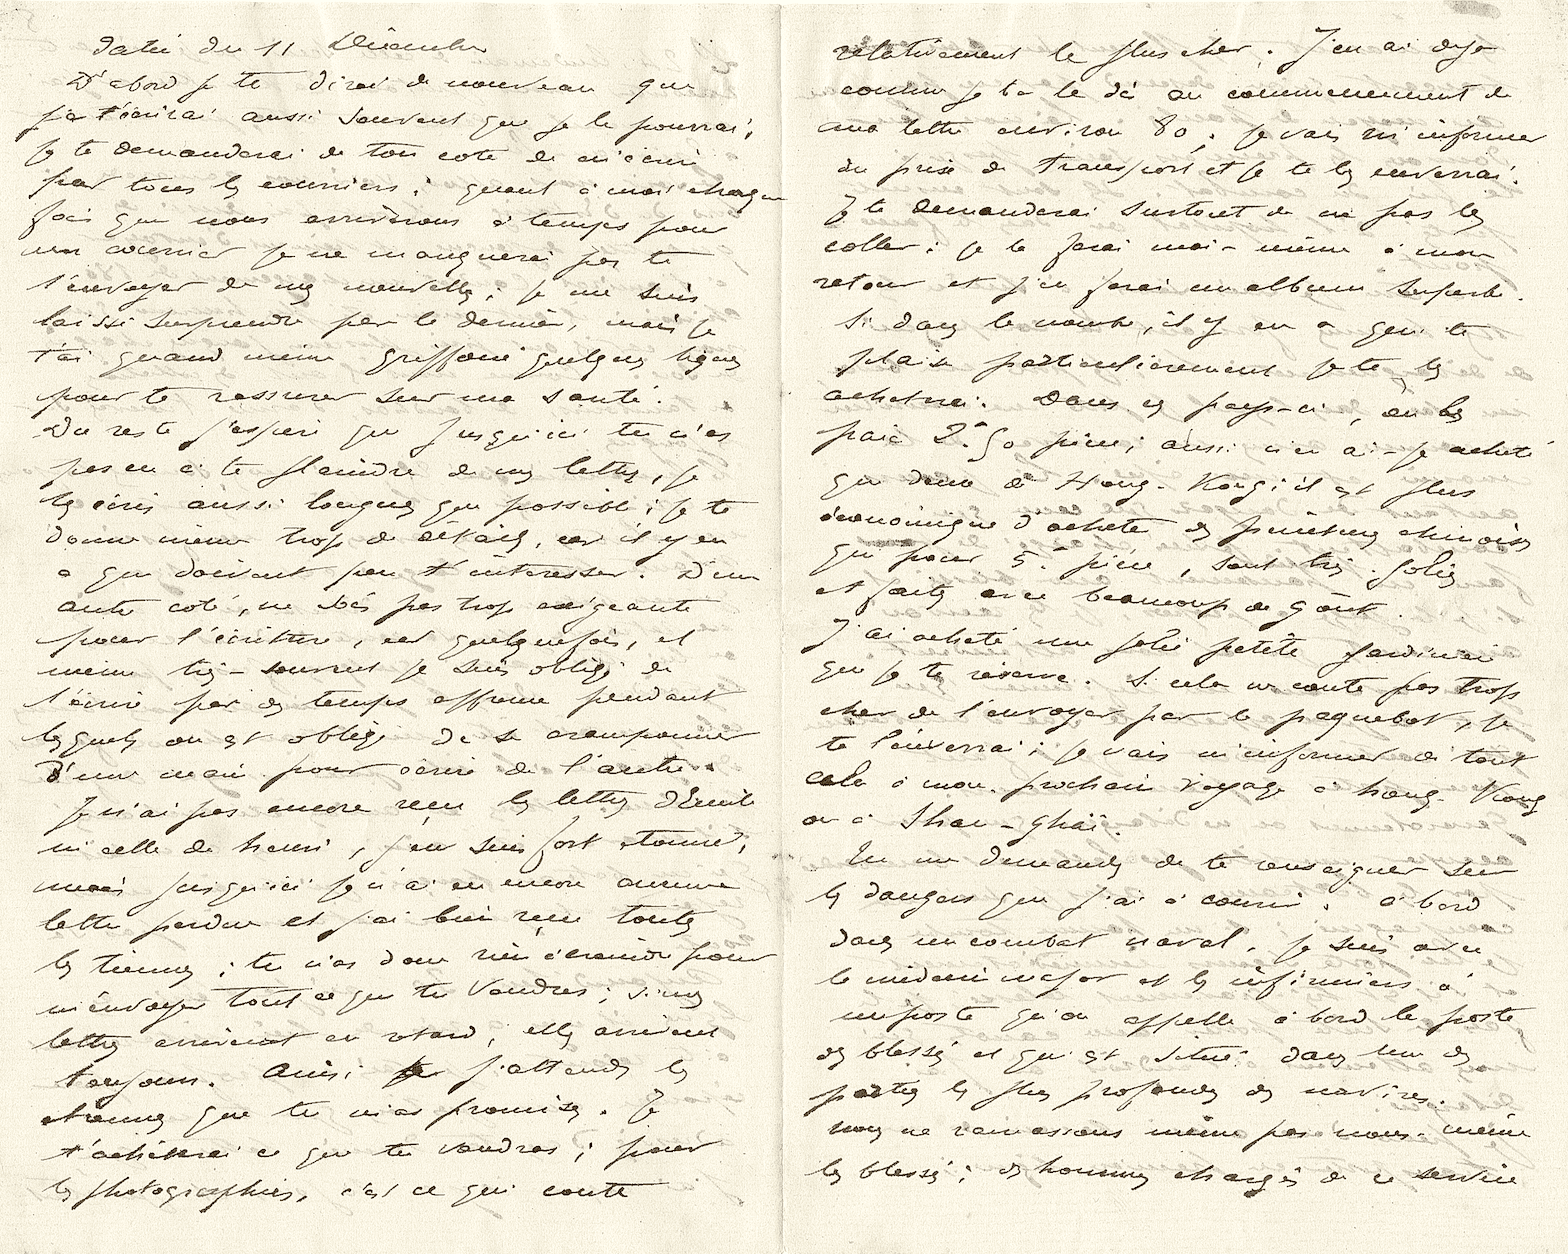 datée du 11 Décembre
D'abord je te dirai de nouveau que
je t'écrirai aussi souvent que je le pourrai,
je te demanderai de ton coté de m'écrire
par tous les courriers ; quant à moi chaque
fois que nous arriverons à temps pour
un courrier je ne manquerai pas te
t'envoyer de mes nouvelles ; je me suis
laissé surprendre par le dernier, mais je
t'ai quand même griffoné quelques lignes
pour te rassurer sur ma santé.
Du reste j'espère que jusqu'ici tu n'as
pas eu à te plaindre de mes lettres, je
les écris aussi longues que possible ; je te
donne même trop de détails, car il y en
a qui doivent peu t'intéresser. D'un
autre coté, ne sois pas trop exigeante
pour l'écriture, car quelquefois, et
même très-souvent je suis obligé de
t'écrire par des temps affreux pendant
lesquels on est obligé de se cramponner
d'une main pour écrire de l'autre.
Je n'ai pas encore reçu les lettres d'Emile
ni celle de henri, j'en suis fort étonné,
mais jusqu'ici je n'ai eu encore aucune
lettre perdue et j'ai bien reçu toutes
les tiennes ; tu n'as donc rien à craindre pour
m'envoyer tout ce que tu voudras ; si mes
lettres arrivent en retard, elles arrivent
toujours. Ainsi j'attends les
étrennes que tu m'as promises. Je
t'achèterai ce que tu voudras ; pour
les photographies, c'est ce qui coute
relativement le plus cher. J'en ai déjà
comme je te le dis au commencement de
ma lettre environ 80 ; je vais m'informer
du prix de transport et je te les enverrai.
Je te demanderai surtout de ne pas les
coller ; je le ferai moi-même à mon
retour et j'en ferai un album superbe.
Si dans le nombre, il y en a qui te
plaise particulièrement je te les
achèterai. Dans ces pays-ci, on les
paie 2.50 pièce ; aussi n'en ai-je acheté
que deux à Hong-Kong ; il est plus
économique d'acheter des peintures chinoises
qui pour 5 pièce, sont très jolies
et faites avec beaucoup de goût.
J'ai acheté une jolie petite jardinière
que je te réserve. Si cela ne coute pas trop
cher de l'envoyer par le paquebot, je
te l'enverrai ; je vais m'informer de tout
cela à mon prochain voyage à hong-Kong
ou à Shan-ghaï.
Tu me demandes de te renseigner sur
les dangers que j'ai à courir. à bord
dans un combat naval, je suis avec
le médecin major et les infirmiers à
un poste qu'on appelle à bord le poste
des blessés et qui est situé dans une des
parties les plus profondes des navires.
nous ne ramassons même pas nous-même
les blessés ; des hommes chargés de ce service